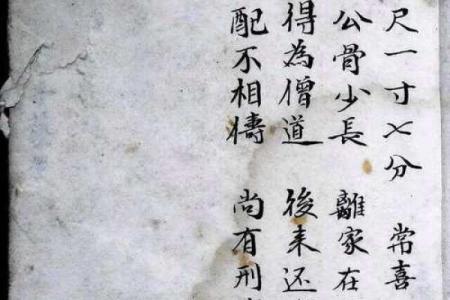 尺一寸七分 常喜
公骨少長 離家在
得為僧道 後来还
配不相 尚有刑